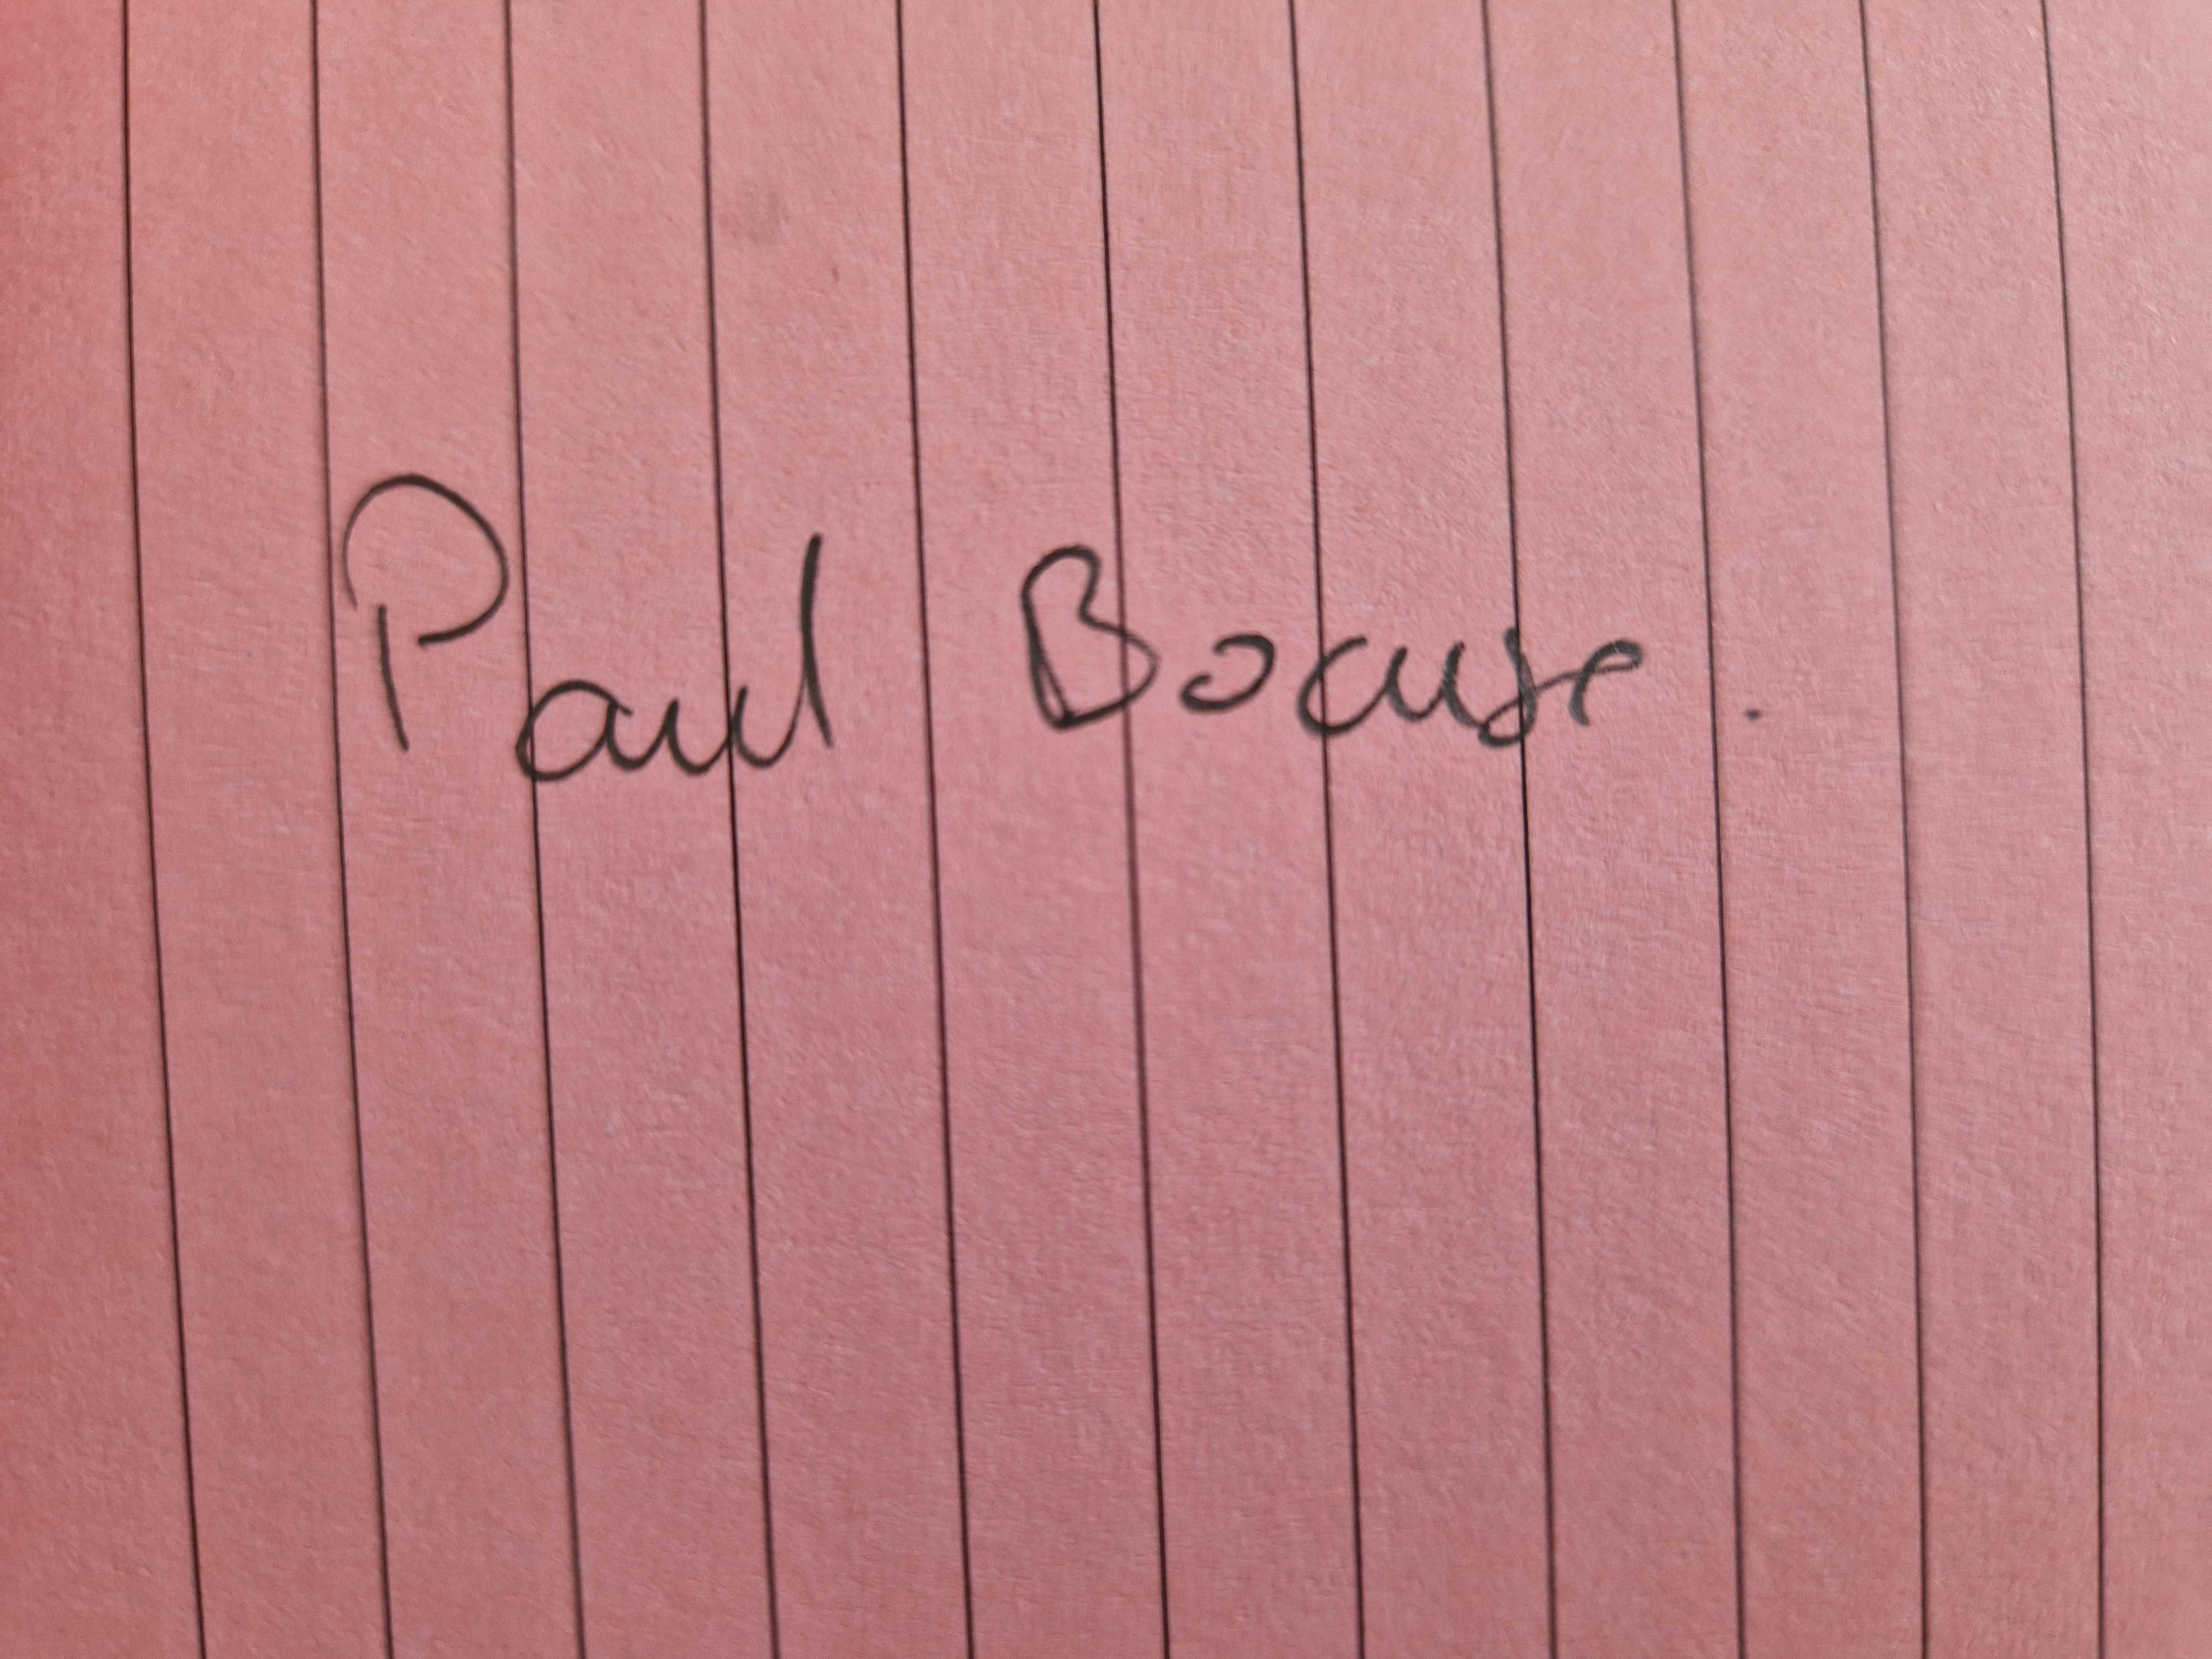 Paul Bocuse.